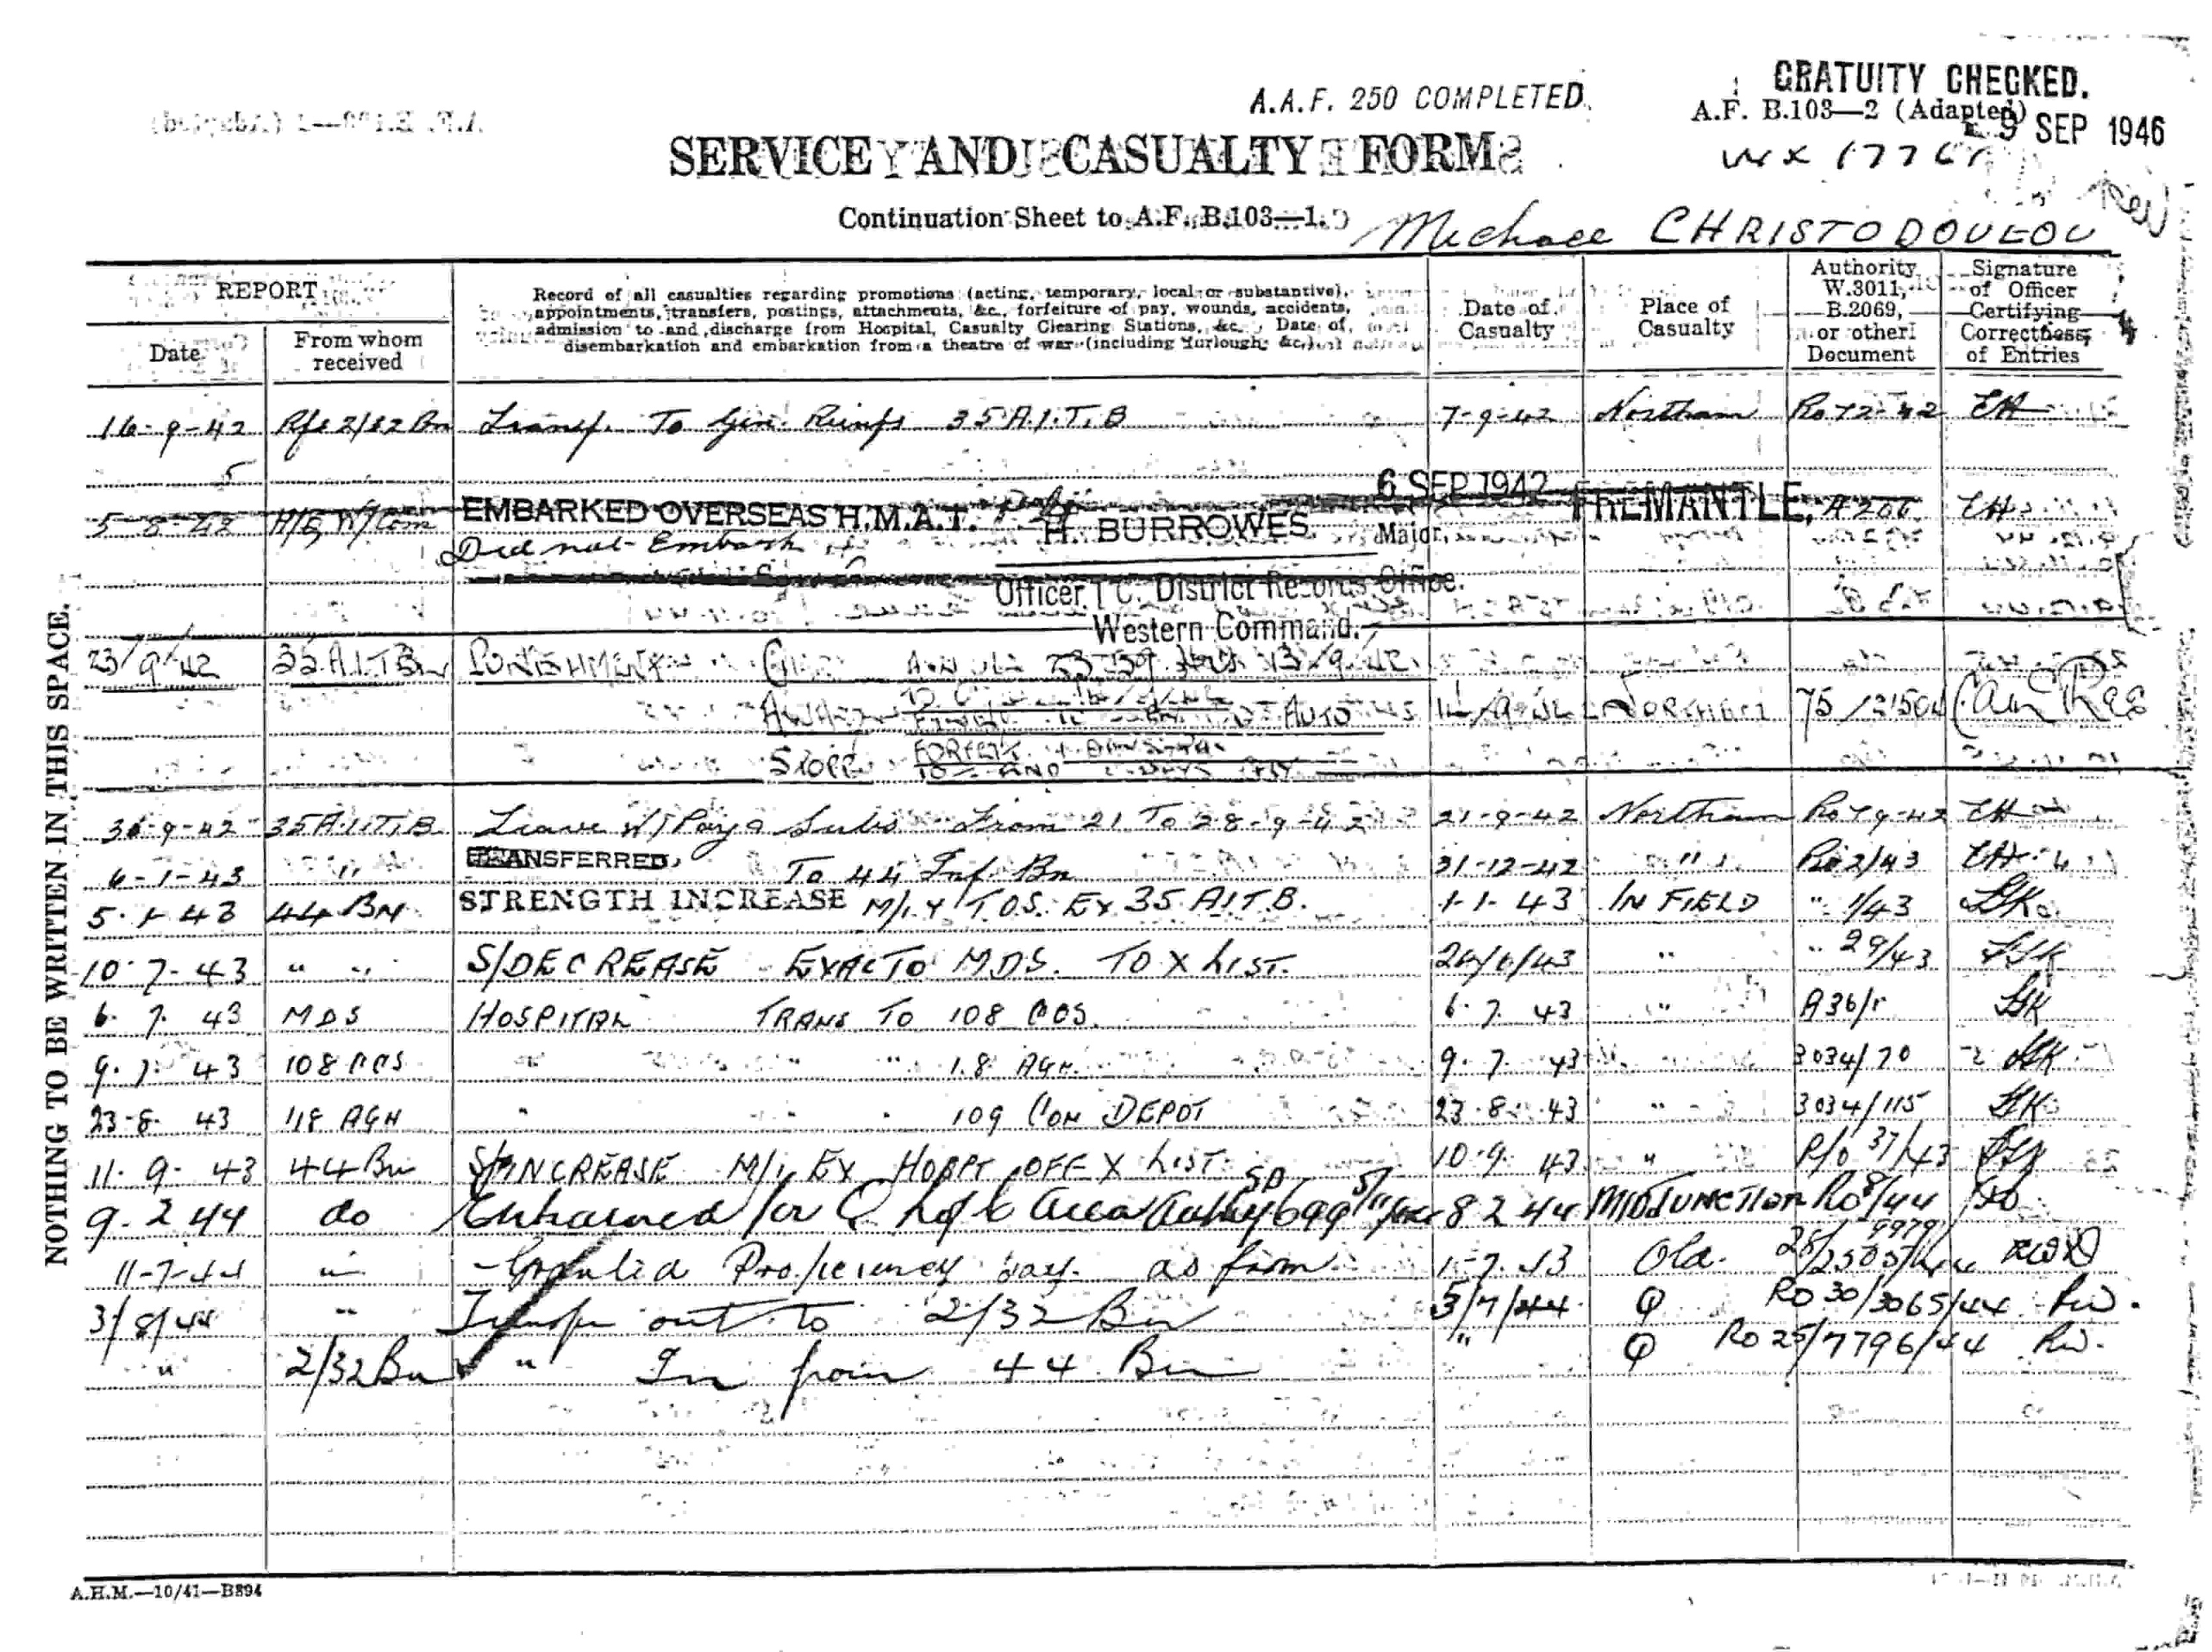 GRATUITY CHECKED.
A.A.F. 250 COMPLETED.
A.F. B.103—2 (Adapted)
9 SEP 1946
SERVICE AND CASUALTY FORM
WX 1776
Continuation Sheet to A.F. B.103—1.
Michael CHRISTODOULOU
REPORT
Date
From whom received
Record of all casualties regarding promotions (acting, temporary, local or substantive),
appointments, transfers, postings, attachments, &c., forfeiture of pay, wounds, accidents,
admission to and discharge from Hospital, Casualty Clearing Stations, &c. Date of
disembarkation and embarkation from a theatre of war (including furlough, &c.)
Date of Casualty
Place of Casualty
Authority W.3011, B.2069, or other Document
Signature of Officer Certifying Correctness of Entries
16-9-42 Rfs 2/32 Bn Transf. To Gen. Reinfs 35 A.I.T.B 7-9-42 Northam Ro 72-42 EH
5-8-42 H/Q W/Com EMBARKED OVERSEAS H.M.A.T. 6 SEP 1942 FREMANTLE, A 206 EH
H. BURROWES Major,
Did not Embark
Officer I C. District Records Office.
Western Command.
23/9/42 35 A.I.T.Bn PUNISHMENT A.W.O.L. 23 59 Hrs 13/9/42
AWARD 14/9/42 NORTHAM 75/2150
FORFEIT
30-9-42 35 A.I.T.B Leave W/Pay & Subs From 21 To 28-9-42 21-9-42 Northam Ro 79-42 EH
6-1-43 " TRANSFERRED. To 44 Inf Bn 31-12-42 " Ro 2/43 EH
5-1-43 44 BN STRENGTH INCREASE M/I. Y T.O.S. Ex 35 A.I.T.B. 1-1-43 IN FIELD " 1/43
10-7-43 " " S/DECREASE EVAC TO MDS. TO X LIST. 26/6/43 " " 29/43
6.7.43 MDS HOSPITAL TRANS TO 108 CCS. 6.7.43 " A36/1
9.7.43 108 CCS " " " 18 AGH 9.7.43 3034/70
23-8-43 118 AGH " " " 109 CON DEPOT 23-8-43 " 3034/115
11-9-43 44 Bn S/INCREASE M/I. EX HOSPT OFF X LIST 10-9-43 " R/o 37/43
9.2.44 do Entrained for Q L of C Area 8 2 44 MIDJUNCTION Ro 8/44
11-7-44 " Granted Proficiency pay as from 1-7-43 Qld.
3/8/44 " Transfer out to 2/32 Bn 5/7/44 Q Ro 30/3065/44 RW.
" 2/32 Bn " In from 44 Bn " Q Ro 25/7796/44 RW.
NOTHING TO BE WRITTEN IN THIS SPACE.
A.H.M.—10/41—B894